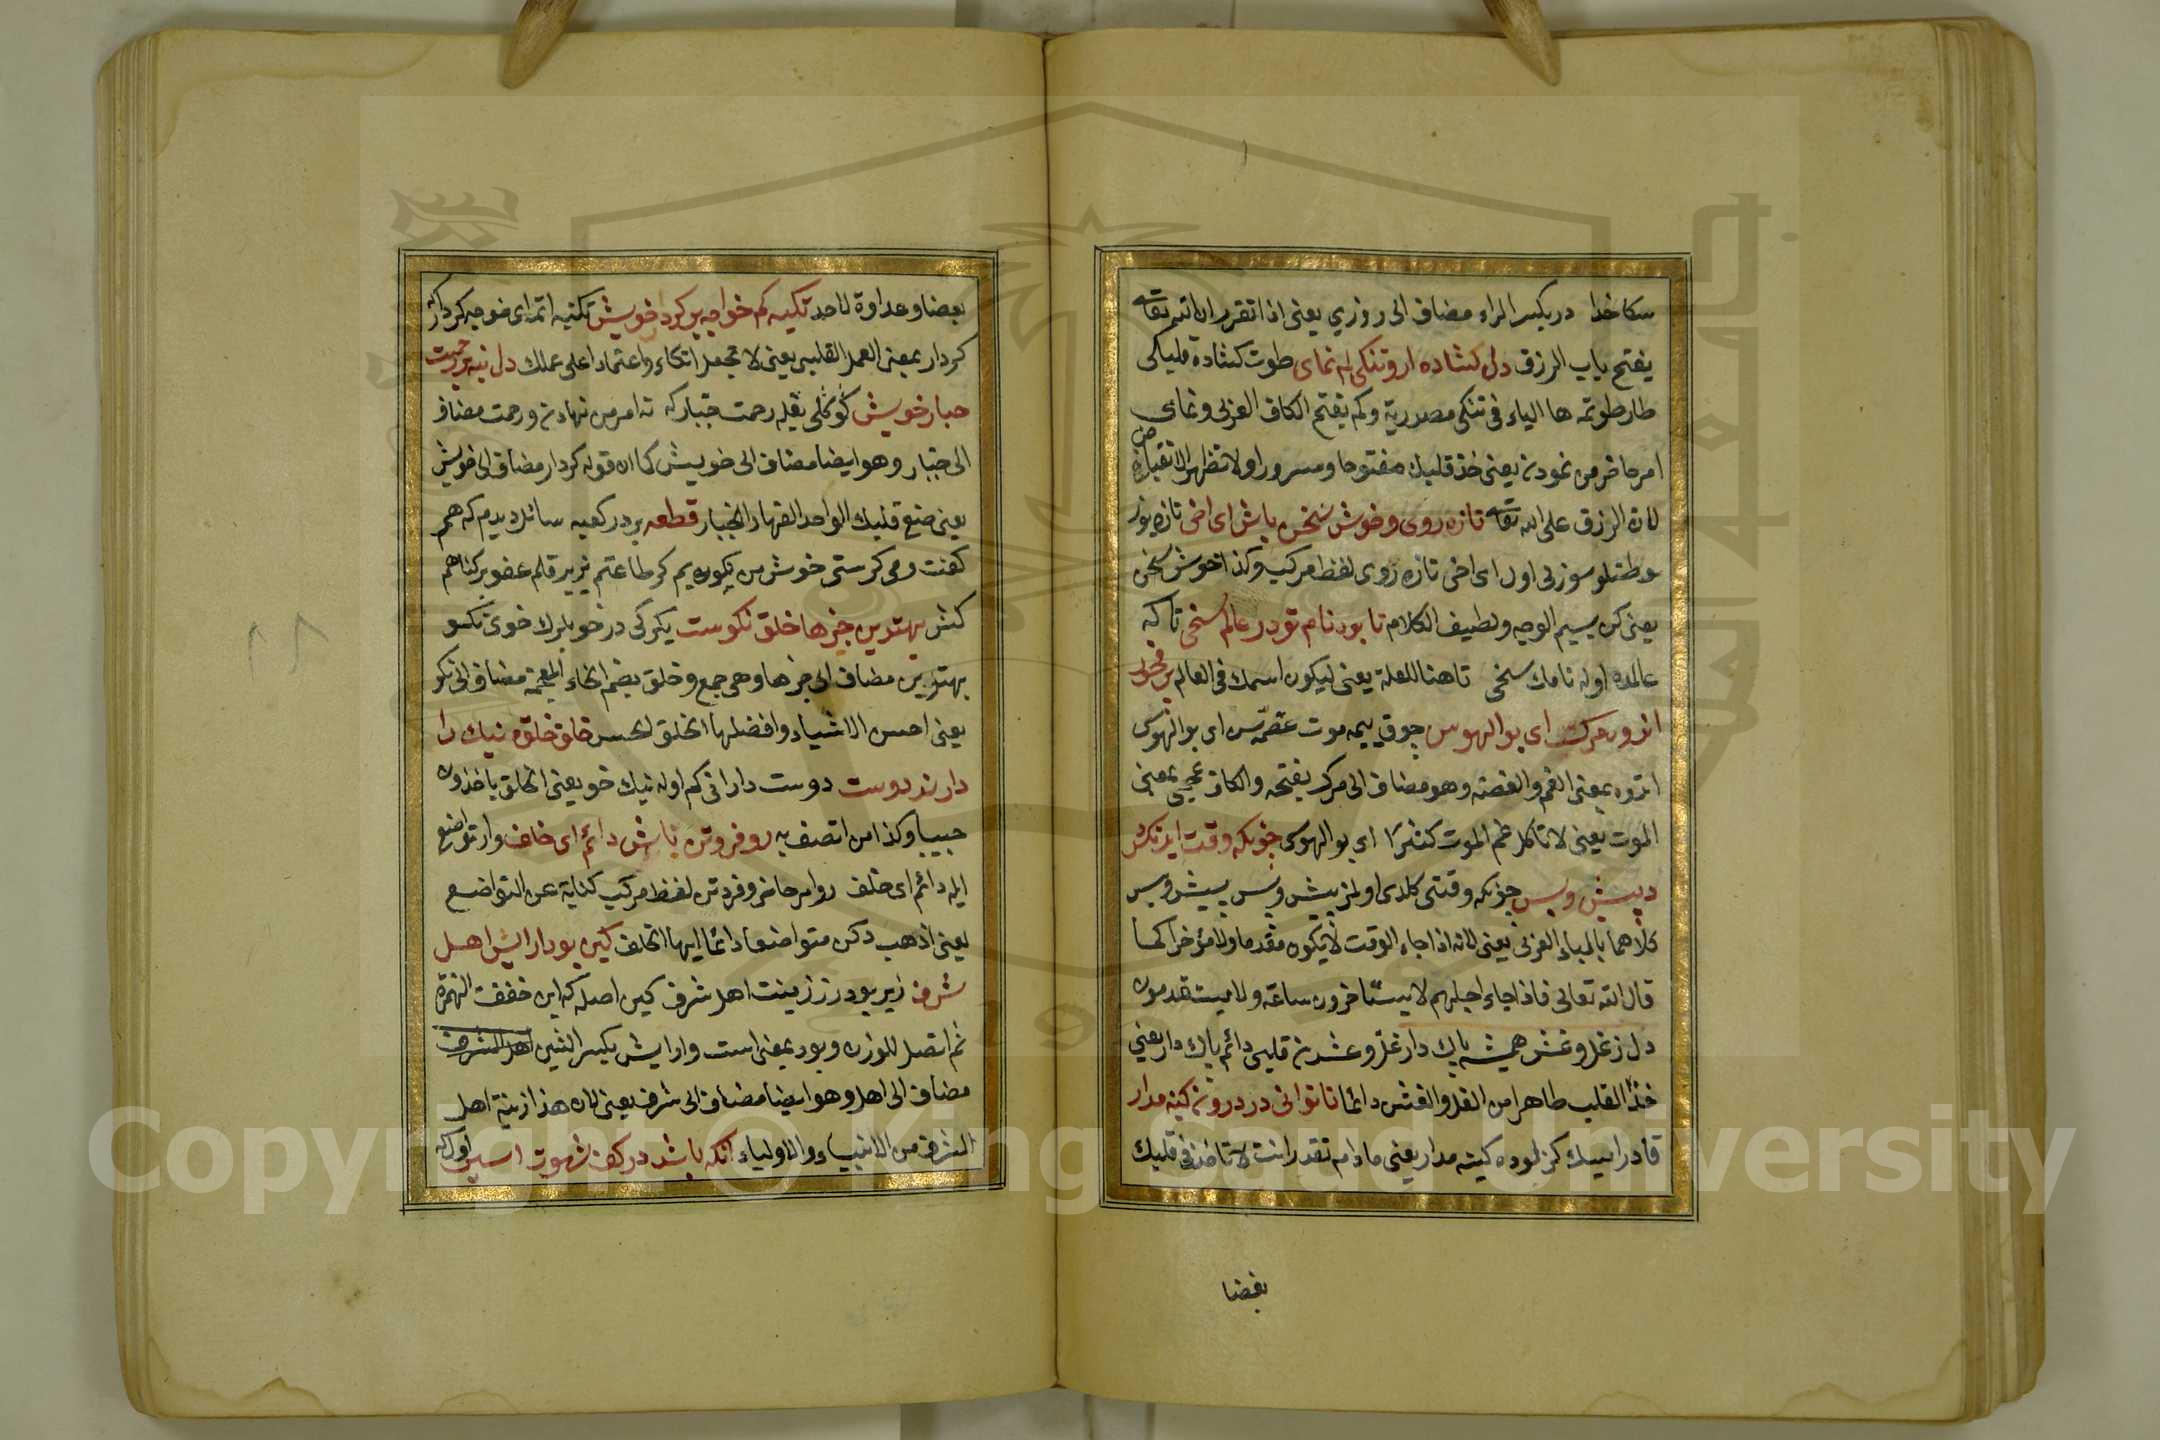 سكا خدا در بكسر الراء مضاف الى روزي يعنى اذا اتقرر ان الله تعالى
يفتح باب الرزق دل كشاده دار وتنكى كم نماى طوت كشاده قلبكى
طارطوتمه ها الياء فى تنكى مصدرية وكم بفتح الكاف العربى ونماى
امر حاضر من نمودن يعنى خذ قلبك مفتوحا ومسرورا ولا تظهر الانقباض
لان الرزق على الله تعالى تازه روى وخوش سخن باش اى اخى تازه يوز
وطتلو سوزلى اول اى اخى تازه روى لفظ مركب وكذا خوش سخن
يعنى كن بسيم الوجه ولطيف الكلام تا بود نام تو در عالم سخى تا كه
عالمده اوله نامك سخى تا هنا للعلة يعنى ليكون اسمك فى العالم بر مخور
اندوه مرگ اى بوالهوس چوق ييمه موت غصه سن اى بوالهوس
اندوه بمعنى الغم والغصه وهو مضاف الى مرك بفتحه والكاف عجمى بمعنى
الموت يعنى لا تاكل غم الموت كثيرا اى بوالهوس چونكه وقت ايد نكردد
پيش وپس چونكه وقتى كلدى اولمز پيش وپس پيش وپس
كلاهما بالباء العربى يعنى لانه اذا جاء الوقت لا يكون مقدما ولا مؤخرا كما
قال الله تعالى فاذا جاء اجلهم لا يستاخرون ساعة ولا يستقدمون
دل زغل وغش هميشه پاك دار غل وغشدن قلبى دائم پاك دار يعنى
خذ القلب طاهرا من الغل والغش دائما تا توانى در درون كينه مدار
قادر ايسك كزلوده كينه مدار يعنى ما دام تقدر انت لا تاخذ فى قلبك
بغضا
بغضا وعداوة لاحد تكيه كم خواجه بر كردار خويش تكيه اتمه اى خوجه كردار
كردار بمعنى العمل القلبى يعنى لا تجعل اتكاء واعتمادا على عملك دل بنه بر رحمت
جبار خويش كوكلى قيله رحمت جباركه نه امر من نهادن ورحمت مضاف
الى جبار وهو ايضا مضاف الى خويش كما ان قوله كردار مضاف الى خويش
يعنى ضع قلبك الواحد القهار الجبار قطعه بر در كعبه سائلى ديدم كه همى
كفت ومى كرستى خوش من نكويم كه طاعتم بپذير قلم عفو بر كناهم
كش بهترين چيزها خلق نكوست يكركى در خوبلرك خوى نكو
بهترين مضاف الى چيزها وهى جمع وخلق بضم الخاء المعجمة مضاف الى نكو
يعنى احسن الاشياء وافضلها الخلق الحسن خلق خلق نيك را
دارند دوست دوست دارانى كم اوله نيك خو يعنى الخلق ياخذون
حبيبا وكذا من اتصف به رو فروتن باش دائم اى خلف وار تواضع
ايله دائم اى خلف رو امر حاضر وفروتن لفظ مركب كناية عن التواضع
يعنى اذهب وكن متواضعا دائما ايها الخلف كين بود آرايش اهل
شرف زير بودرز زينت اهل شرف كين اصله كه اين خففت الهمزة
ثم اتصل للوزن وبود بمعنى است وارايش بكسر الشين
مضاف الى اهل وهو ايضا مضاف الى شرف يعنى لان هذا زينة اهل
الشرف من الانبياء والاولياء آنكه باشد در كف شهوت اسير اول كه